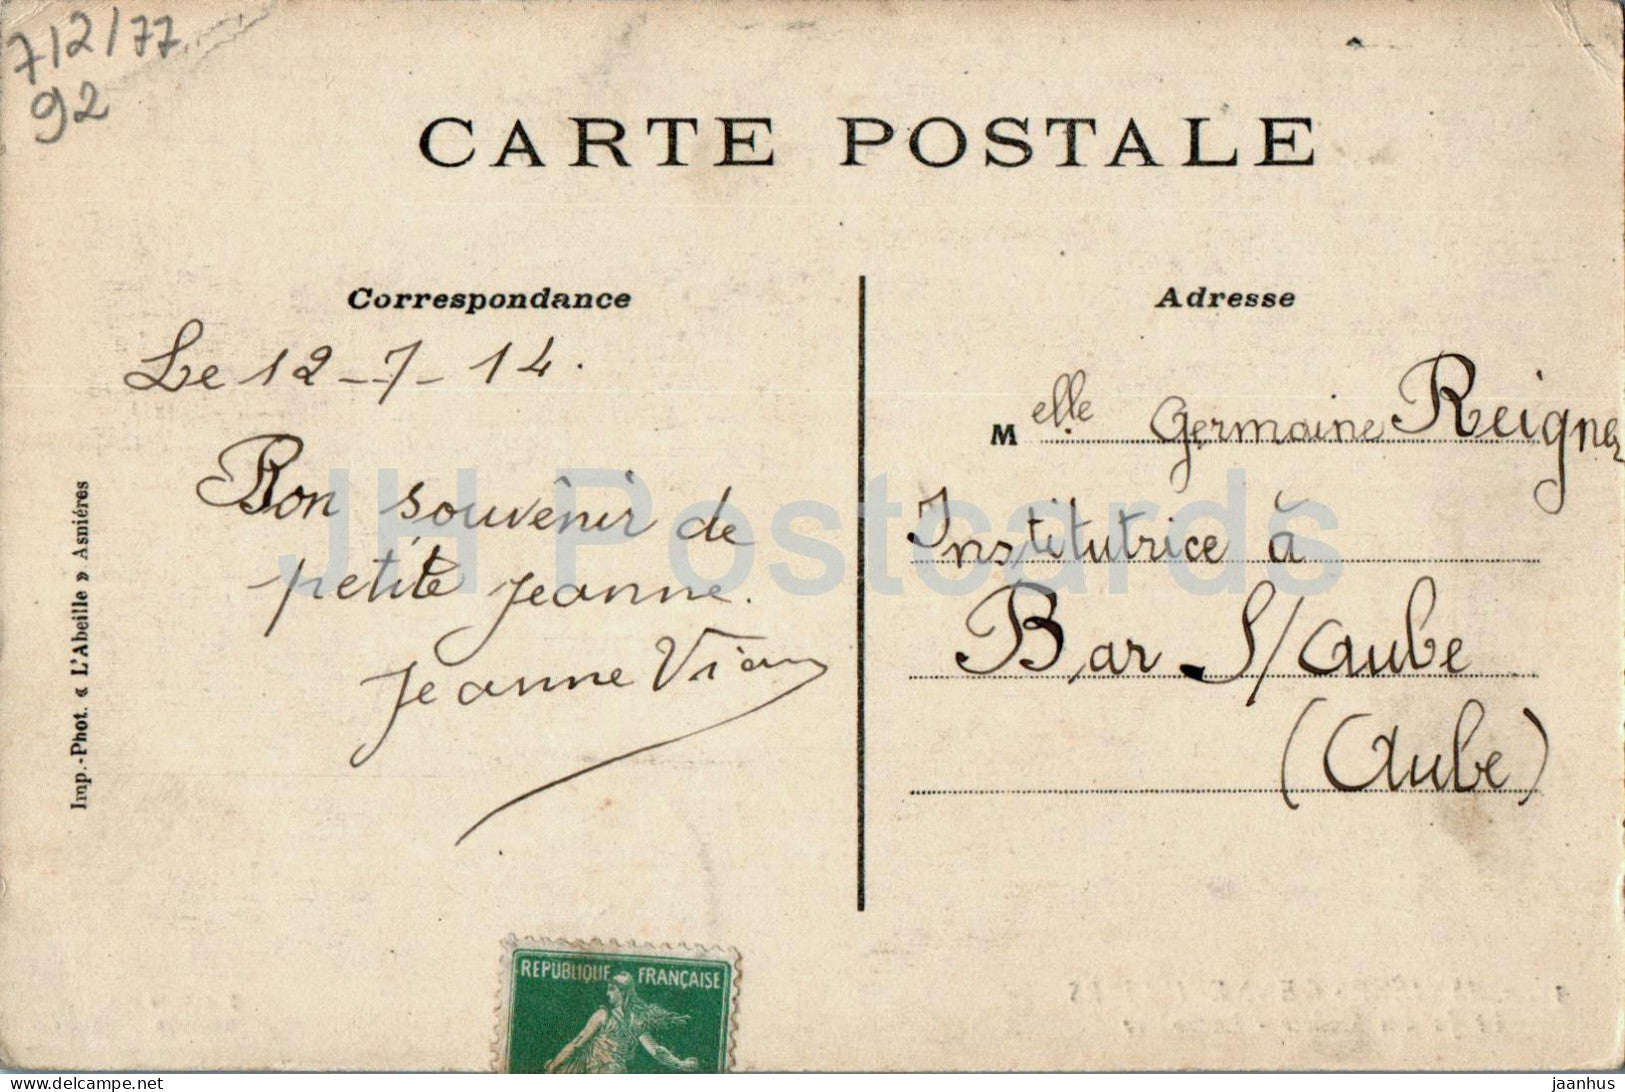 7/2/77
92
CARTE POSTALE
Correspondance
Le 12-7-14.
Bon souvênir de
petite Jeanne.
Jeanne
Imp.-Phot. « L'Abeille » Asnières
Adresse
Melle Germaine
Institutrice à
Bar S/Aube
(Aube)
REPUBLIQUE FRANÇAISE
JH Postcards
delcampe.net
jaanhus